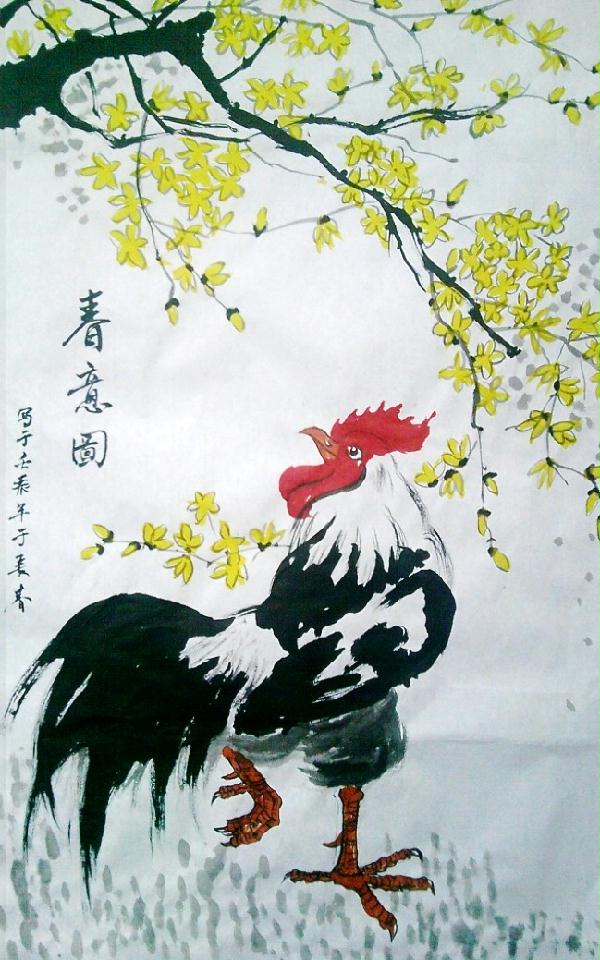 春意圖
写于壬辰年于長春